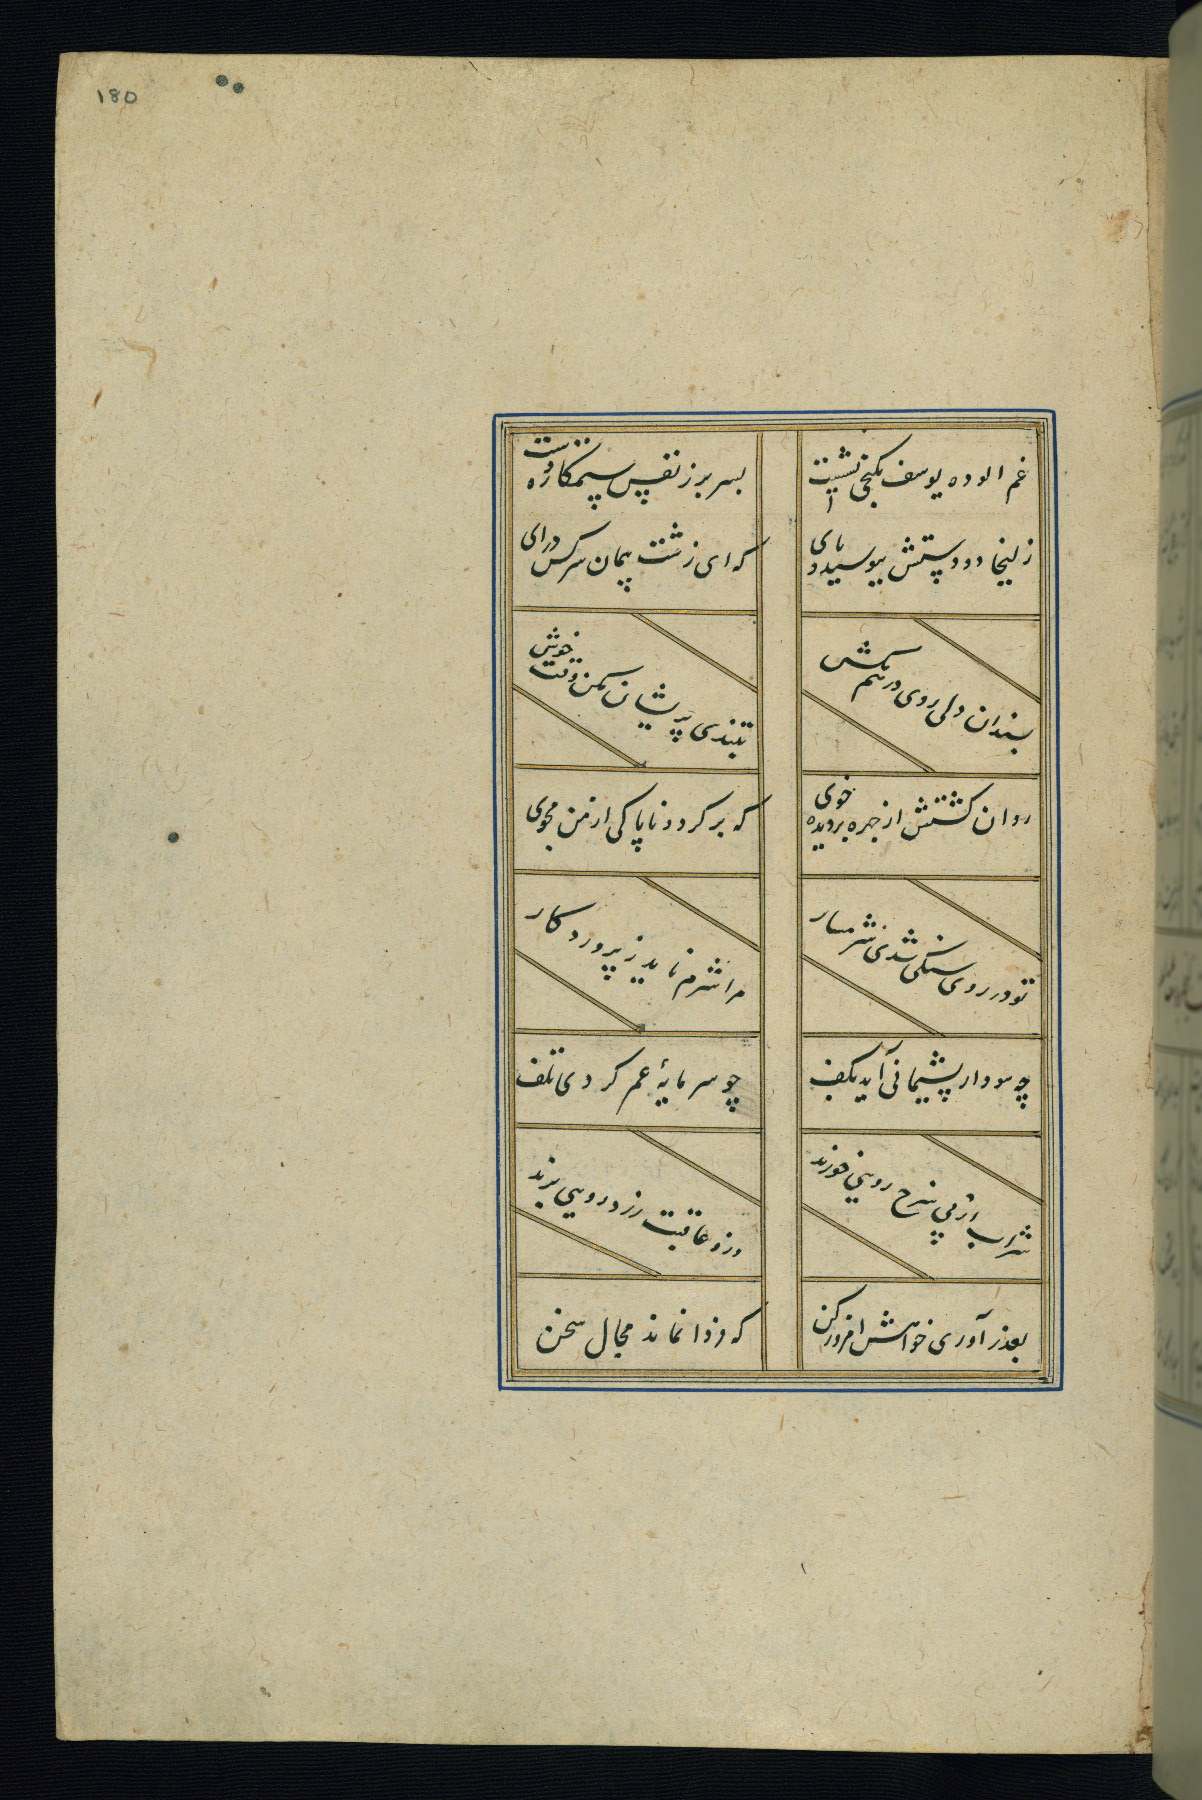 180
غم الوده یوسف بکنجی نشست
بسر بر ز نفس ستمکاره دست
زلیخا دو دستش ببوسید و پای
که ای زشت پیمان سرکش درای
بسندان دلی روی درهم مکش
بتندی پریشان مکن وقت خوش
روان کشتش از چهره بر دیده خوی
که برکرد و ناپاکی از من مجوی
تو در روی سنکی شدی شرمسار
مرا شرم ناید ز پروردکار
چه سود ار پشیمانی آید بکف
چو سرمایهٔ عمر کردی تلف
شراب از پی سرخ رویی خورند
وزو عاقبت زرد رویی برند
بعذر آوری خواهش امروز کن
که فردا نماند مجال سخن